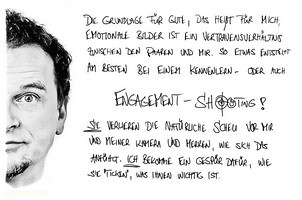 DIE GRUNDLAGE FÜR GUTE, DAS HEIßT FÜR MICH,
EMOTIONALE BILDER IST EIN VERTRAUENSVERHÄLTNIS
ZWISCHEN DEN PAAREN UND MIR. SO ETWAS ENTSTEHT
AM BESTEN BEI EINEM KENNENLERN - ODER AUCH
ENGAGEMENT - SHOOTING!
SIE VERLIEREN DIE NATÜRLICHE SCHEU VOR MIR
UND MEINER KAMERA UND MERKEN, WIE SICH DAS
ANFÜHLT. ICH BEKOMME EIN GESPÜR DAFÜR, WIE
SIE "TICKEN", WAS IHNEN WICHTIG IST.